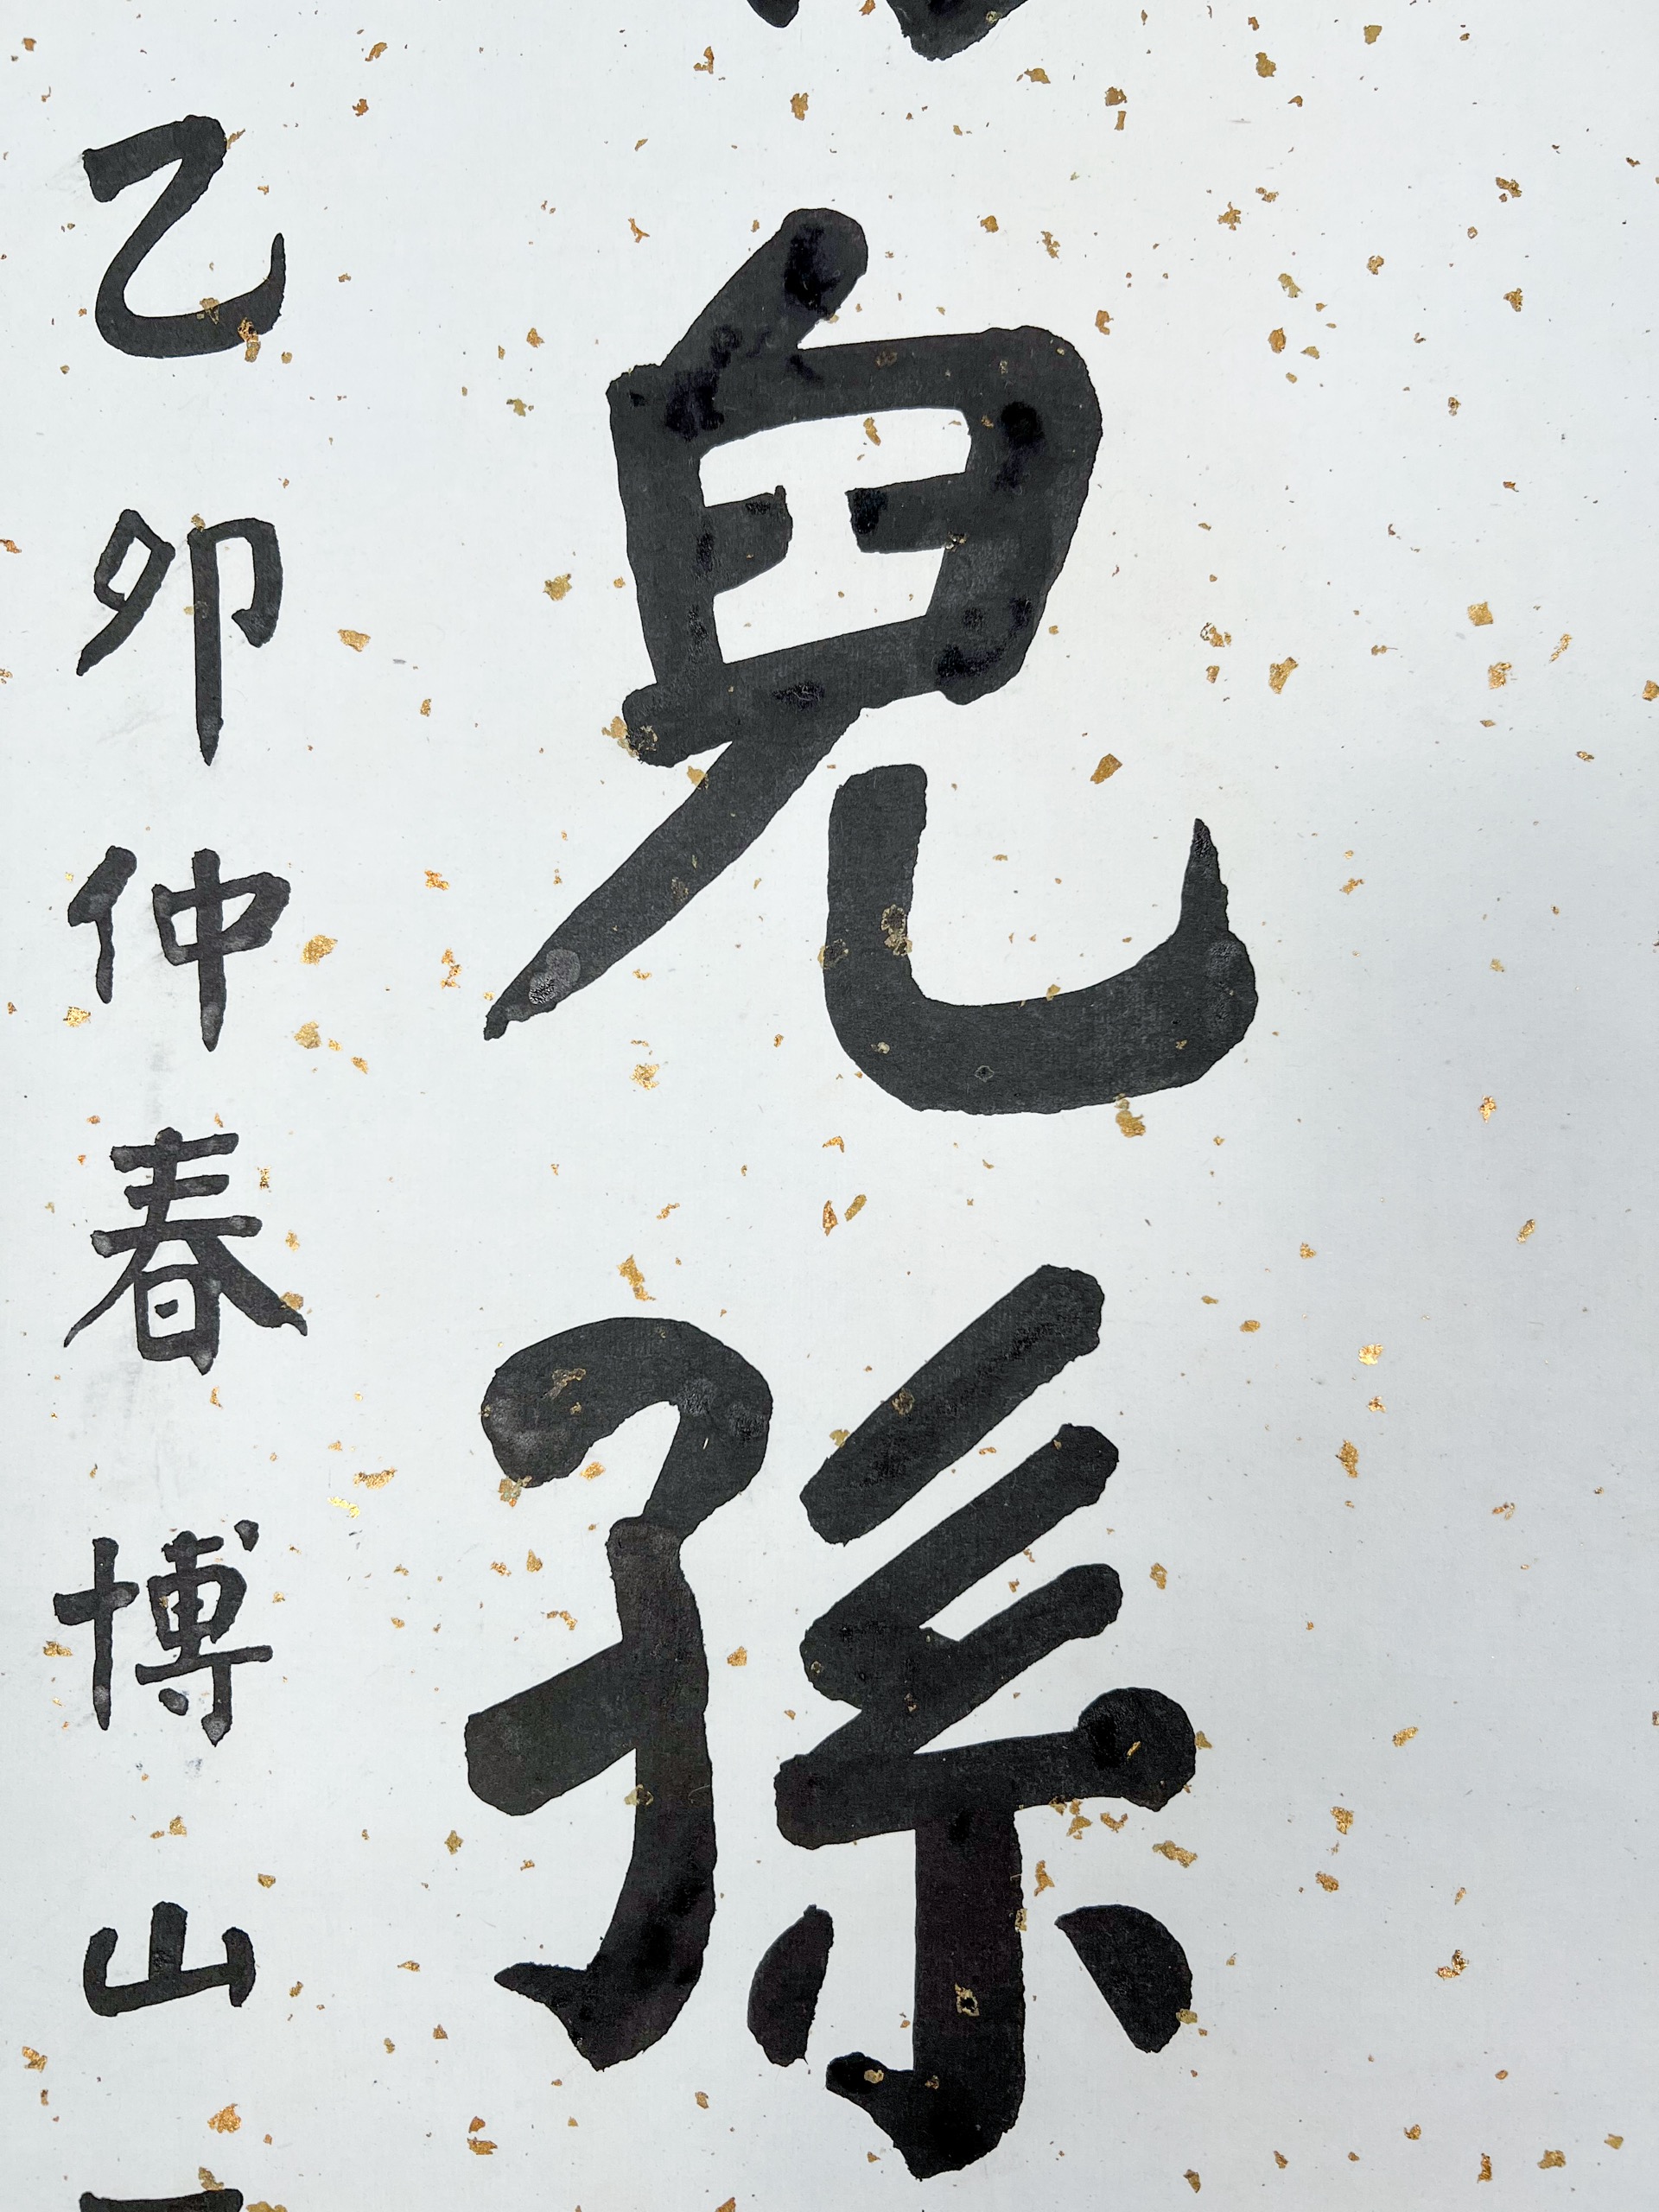 兒孫
乙卯仲春博山